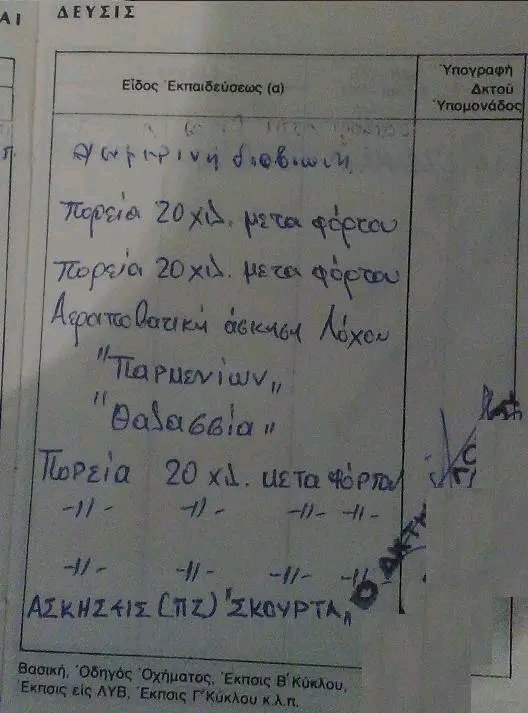 ΑΙ ΔΕΥΣΙΣ
Εἶδος Ἐκπαιδεύσεως (α)
Ὑπογραφή
Δκτοῦ
Ὑπομονάδος
διαβίωση
Πορεία 20 χιλ. μετα φόρτου
Πορεία 20 χιλ. μετα φόρτου
Αεραποβατική άσκηση Λόχου
"Παρμενίων"
"Θαλασσία"
Πορεία 20 χιλ. μετα φόρτου
-//- -//- -//- -//-
-//- -//- -//- -//-
Ο ΔΚΤΗΣ
ΑΣΚΗΣΕΙΣ (ΠΖ) "ΣΚΟΥΡΤΑ"
Βασική, Ὁδηγός Ὀχήματος, Ἔκπσις Β΄ Κύκλου,
Ἔκπσις εἰς ΛΥΒ, Ἔκπσις Γ΄ Κύκλου κ.λ.π.